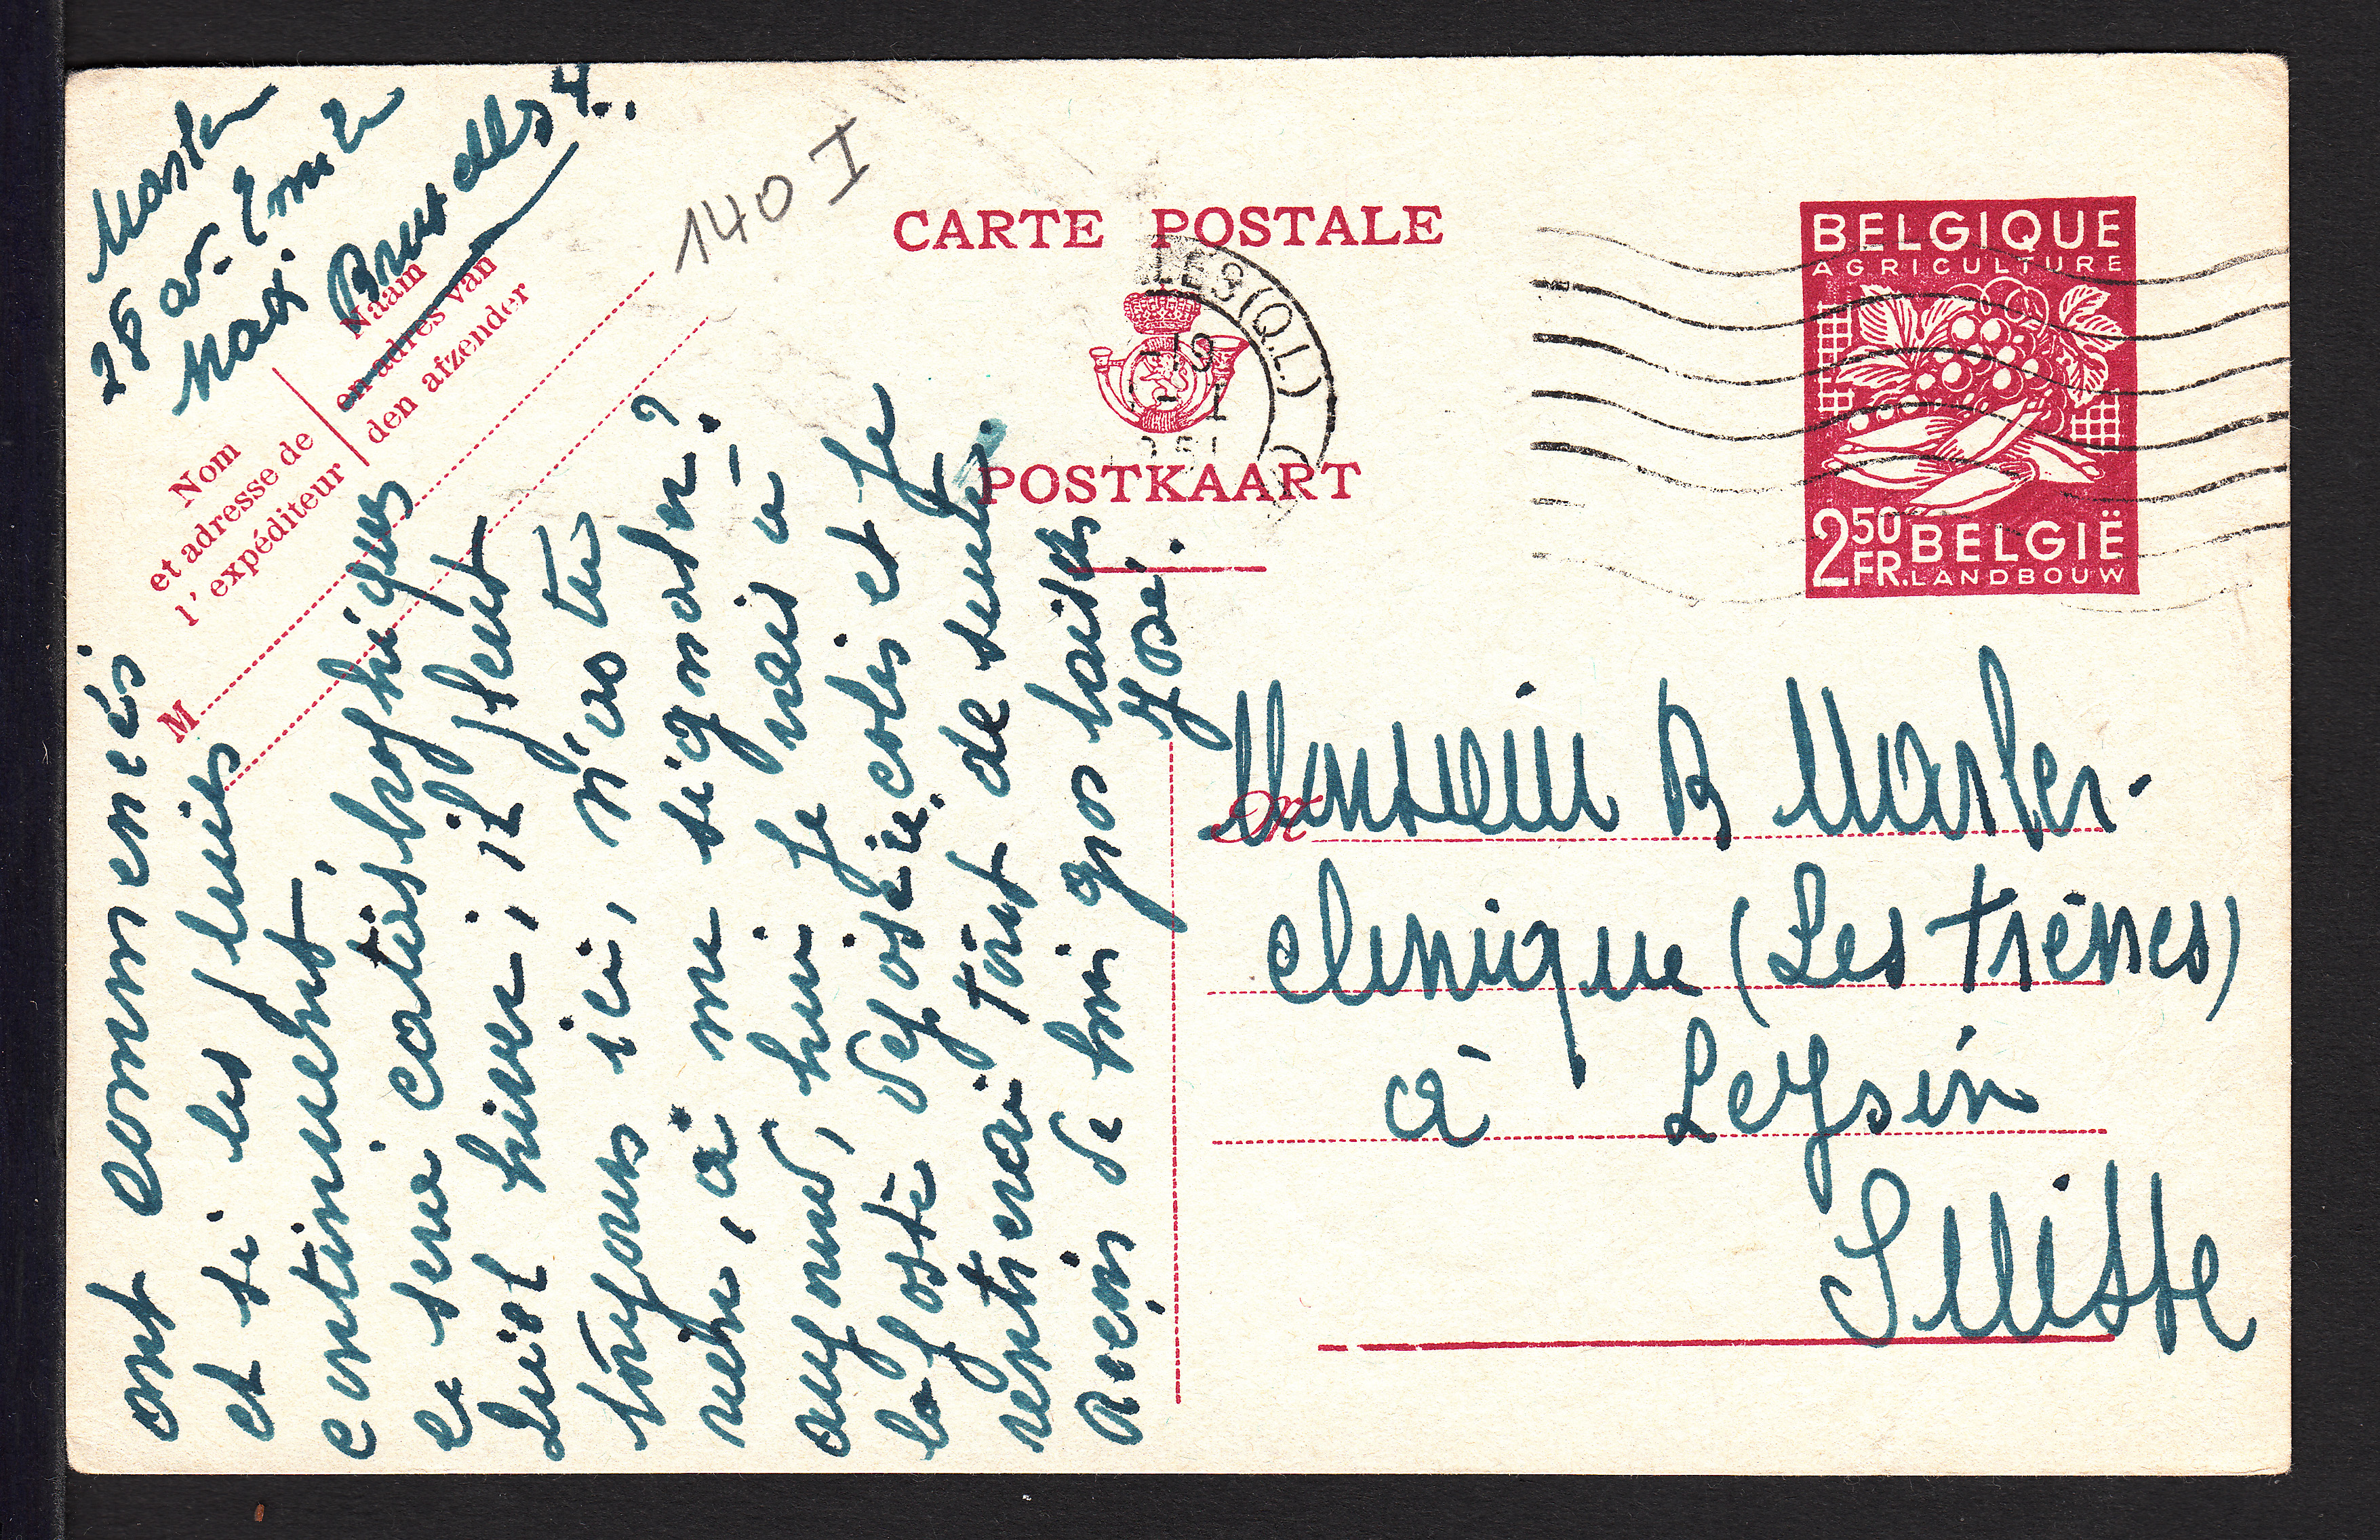 28 av. Emile
Max.
Bruxelles 4.
140 I
CARTE POSTALE
LES (Q.L.)
POSTKAART
BELGIQUE
AGRICULTURE
2 50 FR. BELGIË
LANDBOUW
Naam
en adres van
den afzender
Nom
et adresse de
l'expéditeur
M
ont commencés
et si les pluies
continuent,
ce sera catastrophique
cet hiver, il pleut
toujours ici, n'as tu
rien, à me signaler?
aujourd'hui je vais à
la poste déposer ce colis et je
rentrerai tout de suite.
Reçois de gros baisers
José.
M
Monsieur R
clinique (Les Frênes)
à Leysin
Suisse